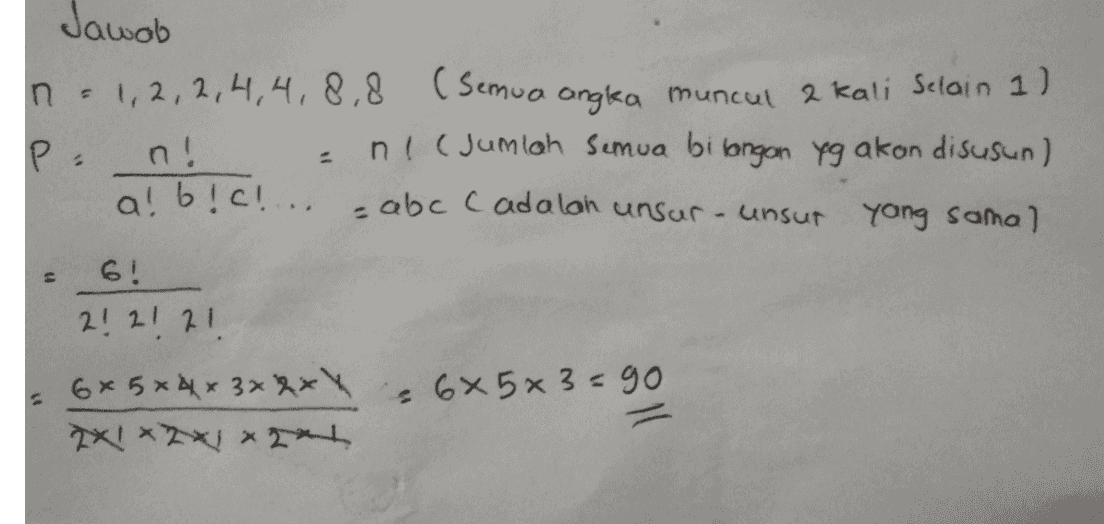 Jawab
n = 1, 2, 2, 4, 4, 8, 8 (Semua angka muncul 2 kali Selain 1)
P = n! / a! b! c! ... = n! (Jumlah Semua bilangan yg akan disusun)
= abc (adalah unsur-unsur yang sama)
= 6! / 2! 2! 2!
= 6 × 5 × 4 × 3 × 2 × 1 / 2×1 × 2×1 × 2×1 = 6 × 5 × 3 = 90